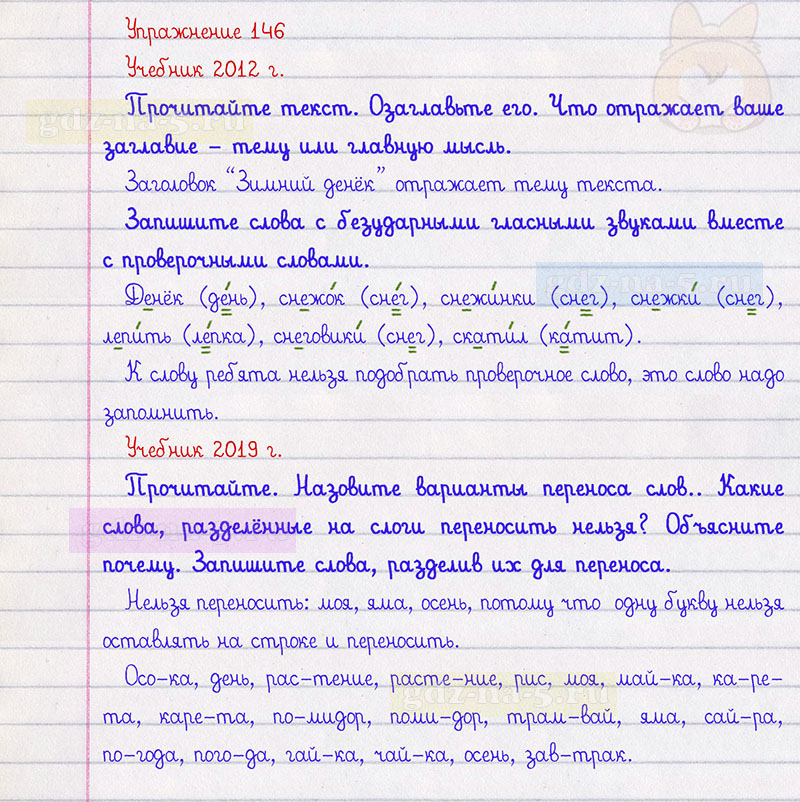 Упражнение 146
Учебник 2012 г.
Прочитайте текст. Озаглавьте его. Что отражает ваше
заглавие – тему или главную мысль.
Заголовок “Зимний денёк” отражает тему текста.
Запишите слова с безударными гласными звуками вместе
с проверочными словами.
Денёк (де́нь), снежо́к (сне́г), снежи́нки (снег), снежки́ (снег),
лепи́ть (ле́пка), снеговики́ (снег), скати́л (ка́тит).
К слову ребята нельзя подобрать проверочное слово, это слово надо
запомнить.
Учебник 2019 г.
Прочитайте. Назовите варианты переноса слов.. Какие
слова, разделённые на слоги переносить нельзя? Объясните
почему. Запишите слова, разделив их для переноса.
Нельзя переносить: моя, яма, осень, потому что одну букву нельзя
оставлять на строке и переносить.
Осо-ка, день, рас-тение, расте-ние, рис, моя, май-ка, ка-ре-
та, каре-та, по-мидор, поми-дор, трам-вай, яма, сай-ра,
по-года, пого-да, гай-ка, чай-ка, осень, зав-трак.
gdz-na-5.ru
gdz-na-5.ru
gdz-na-5.ru